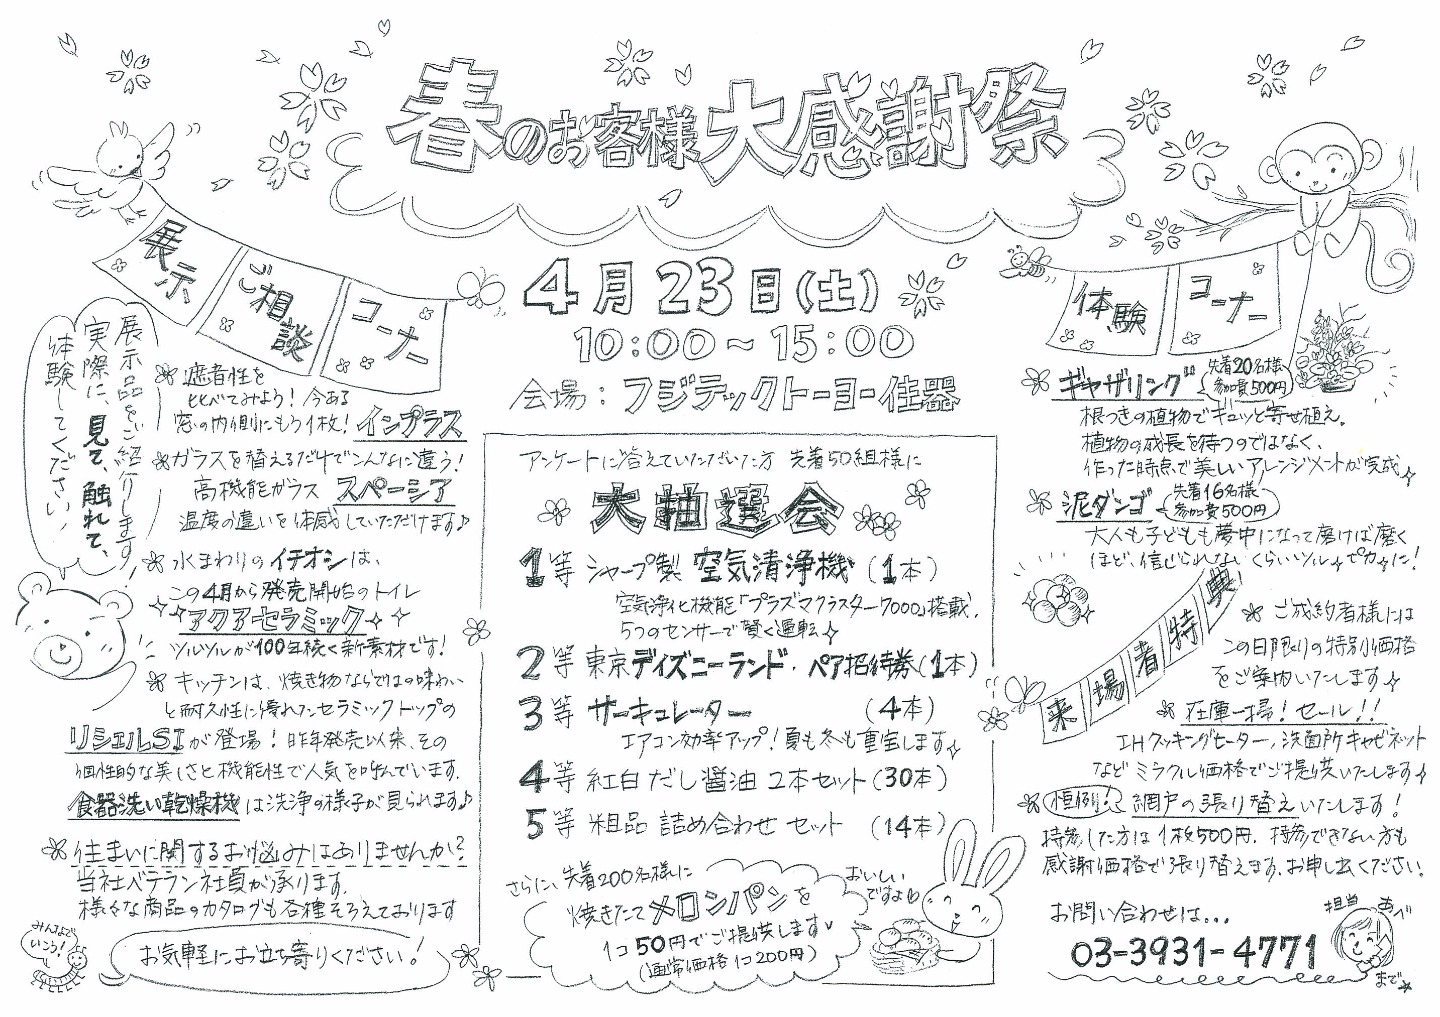 春のお客様大感謝祭
4月23日(土)
10:00～15:00
会場：フジテックトーヨー住器
展示
ご相談
コーナー
展示品をご紹介します
実際に、見て、触れて、
体験してください！
遮音性を
比べてみよう！今ある
窓の内側にもう1枚！インプラス
ガラスを替えるだけでこんなに違う！
高機能ガラス スペーシア
温度の違いを体感していただけます♪
水まわりのイチオシは、
この4月から発売開始のトイレ
アクアセラミック
ツルツルが100年続く新素材です！
キッチンは、焼き物ならではの味わい
と耐久性に優れたセラミックトップの
リシェルSIが登場！昨年発売以来、その
個性的な美しさと機能性で人気を呼んでいます.
食器洗い乾燥機は洗浄の様子が見られます♪
住まいに関するお悩みはありませんか？
当社ベテラン社員が承ります.
様々な商品のカタログも各種そろえております
みんなで
いこう！
お気軽にお立ち寄りください！
アンケートに答えていただいた方 先着50組様に
大抽選会
1等 シャープ製 空気清浄機 (1本)
空気浄化機能「プラズマクラスター7000」搭載.
5つのセンサーで賢く運転
2等 東京ディズニーランド・ペア招待券(1本)
3等 サーキュレーター (4本)
エアコン効率アップ！夏も冬も重宝します
4等 紅白だし醤油 2本セット(30本)
5等 粗品 詰め合わせ セット (14本)
さらに、先着200名様に
焼きたてメロンパンを
1コ50円でご提供します♥
(通常価格1コ200円)
おいしい
ですよ♡
体験
コーナー
ギャザリング 先着20名様
参加費500円
根つきの植物でギュッと寄せ植え。
植物の成長を待つのではなく、
作った時点で美しいアレンジメントが完成
泥ダンゴ 先着16名様
参加費500円
大人も子どもも夢中になって磨けば磨く
ほど、信じられないくらいツルピカに！
来場者特典
ご成約者様には
この日限りの特別価格
をご案内いたします
在庫一掃！セール！！
IHクッキングヒーター，洗面所キャビネット
など ミラクル価格でご提供いたします
恒例！網戸の張り替えいたします！
持参した方は1枚500円. 持参できない方も
感謝価格で張り替えます.お申し込ください.
お問い合わせは...
担当 あべ
03-3931-4771
まで